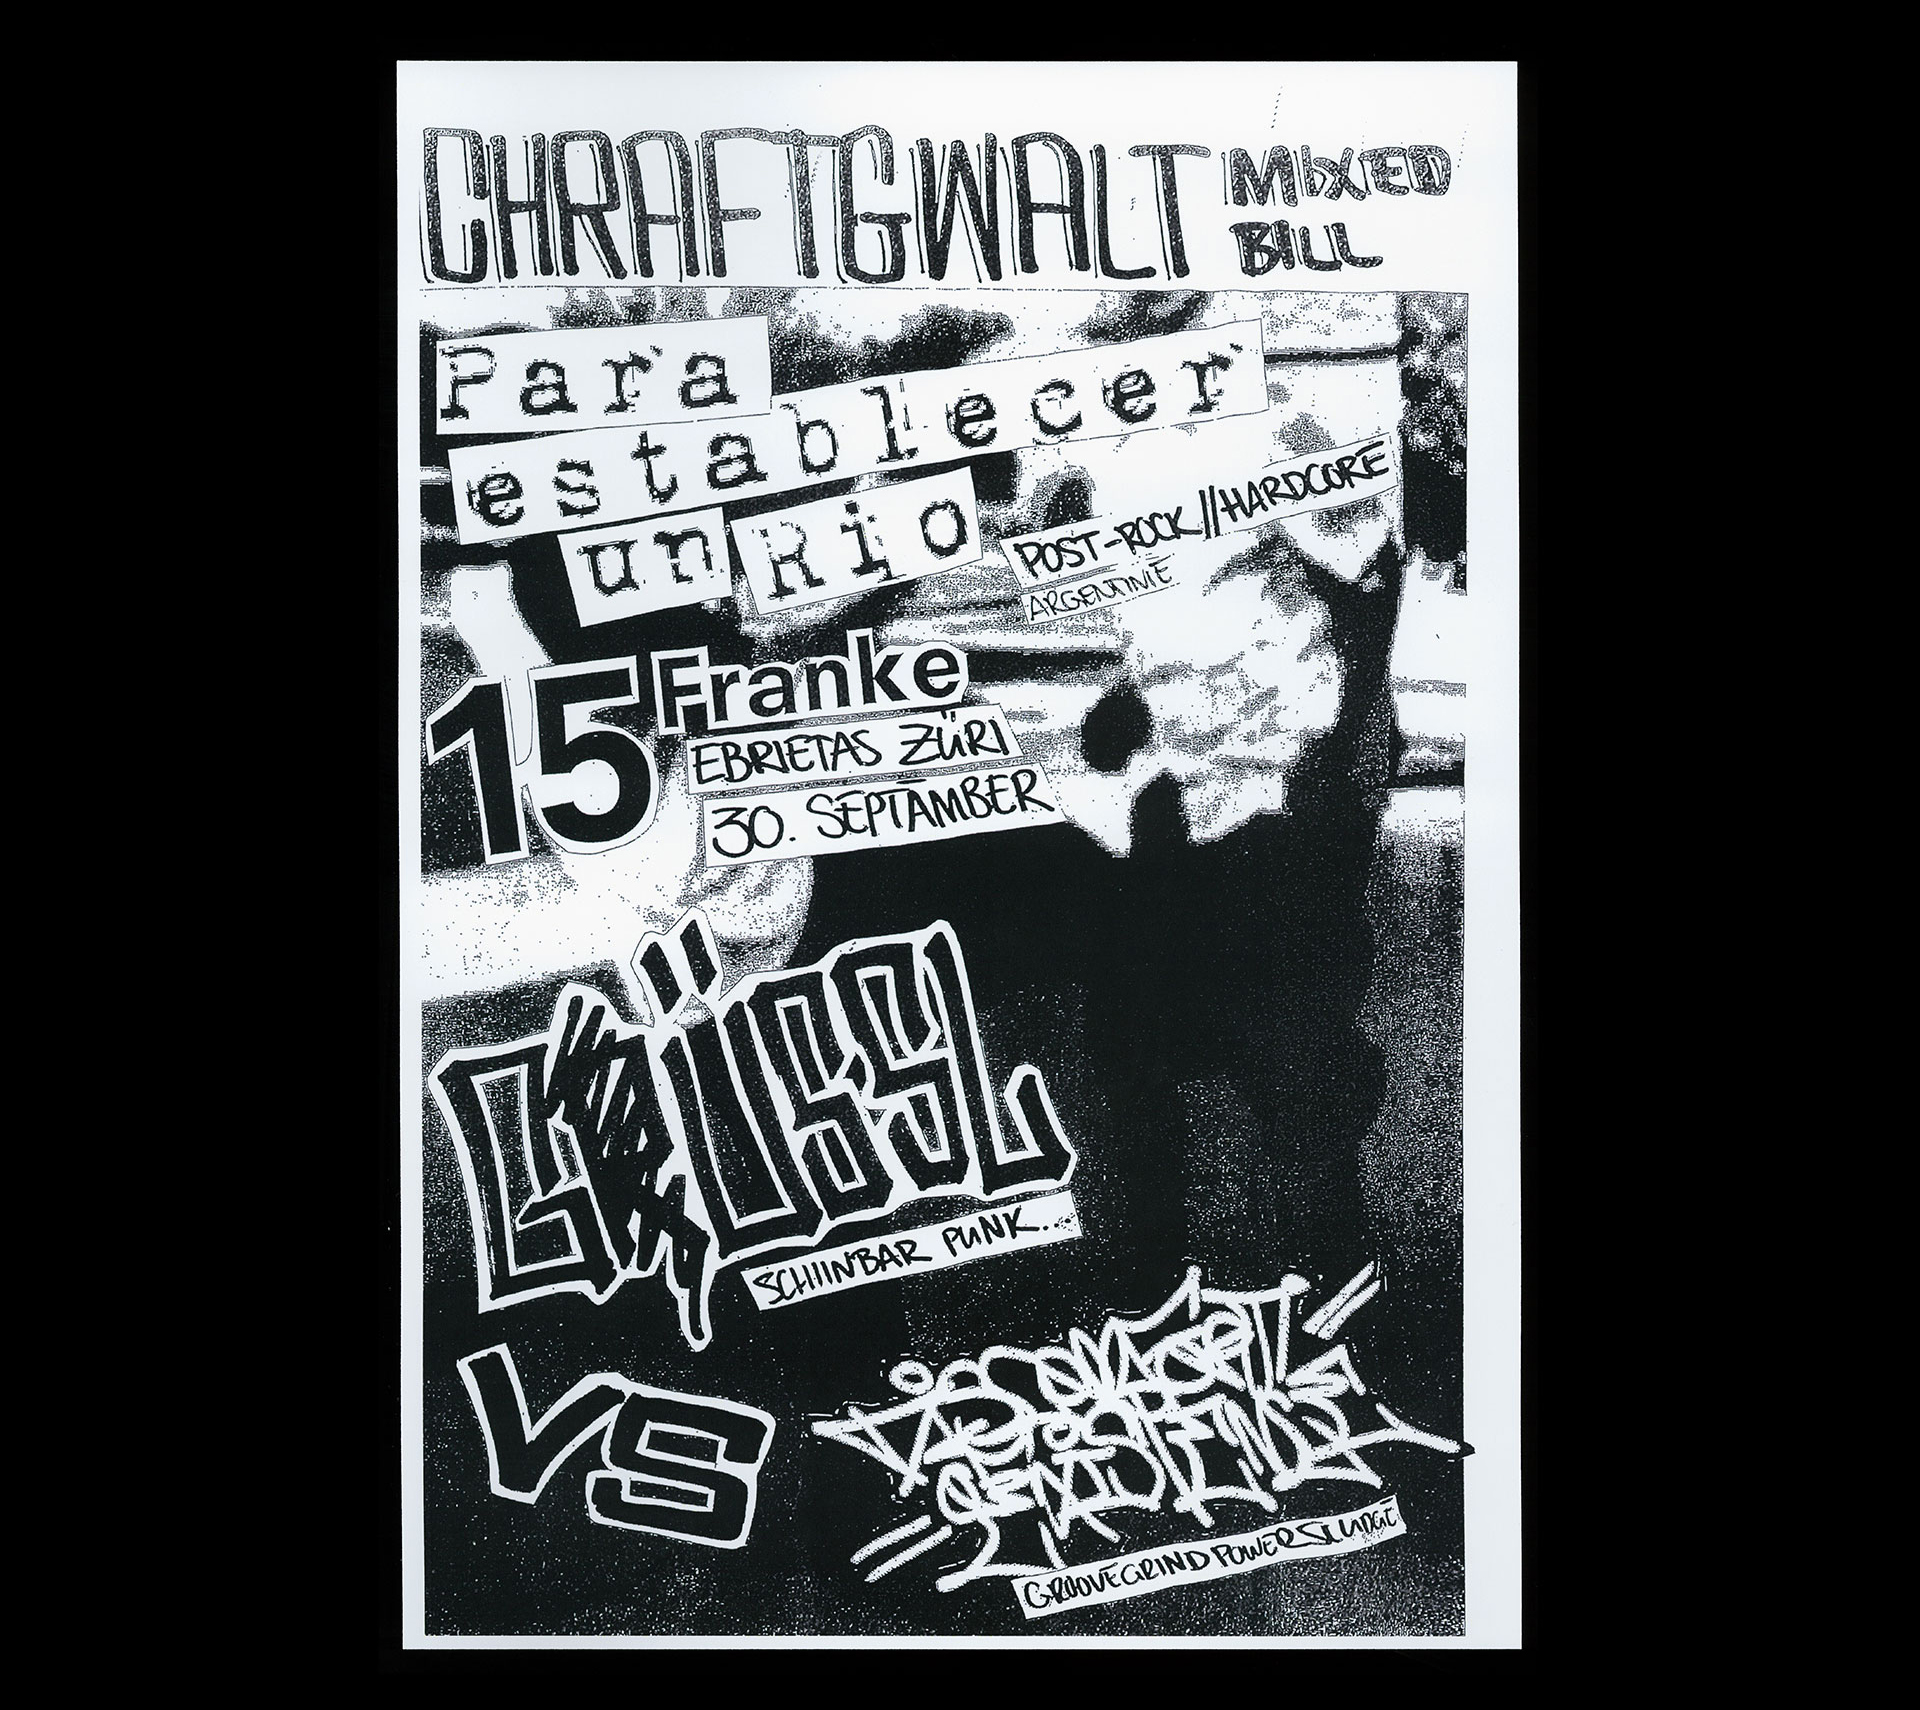 CHRAFTGWALT MIXED
BILL
Para
establecer
un Rio
POST-ROCK//HARDCORE
ARGENTINIE
15 Franke
EBRIETAS ZÜRI
30. SEPTÄMBER
SCHIINBAR PUNK...
VS
GROOVEGRINDPOWERSLUDGE